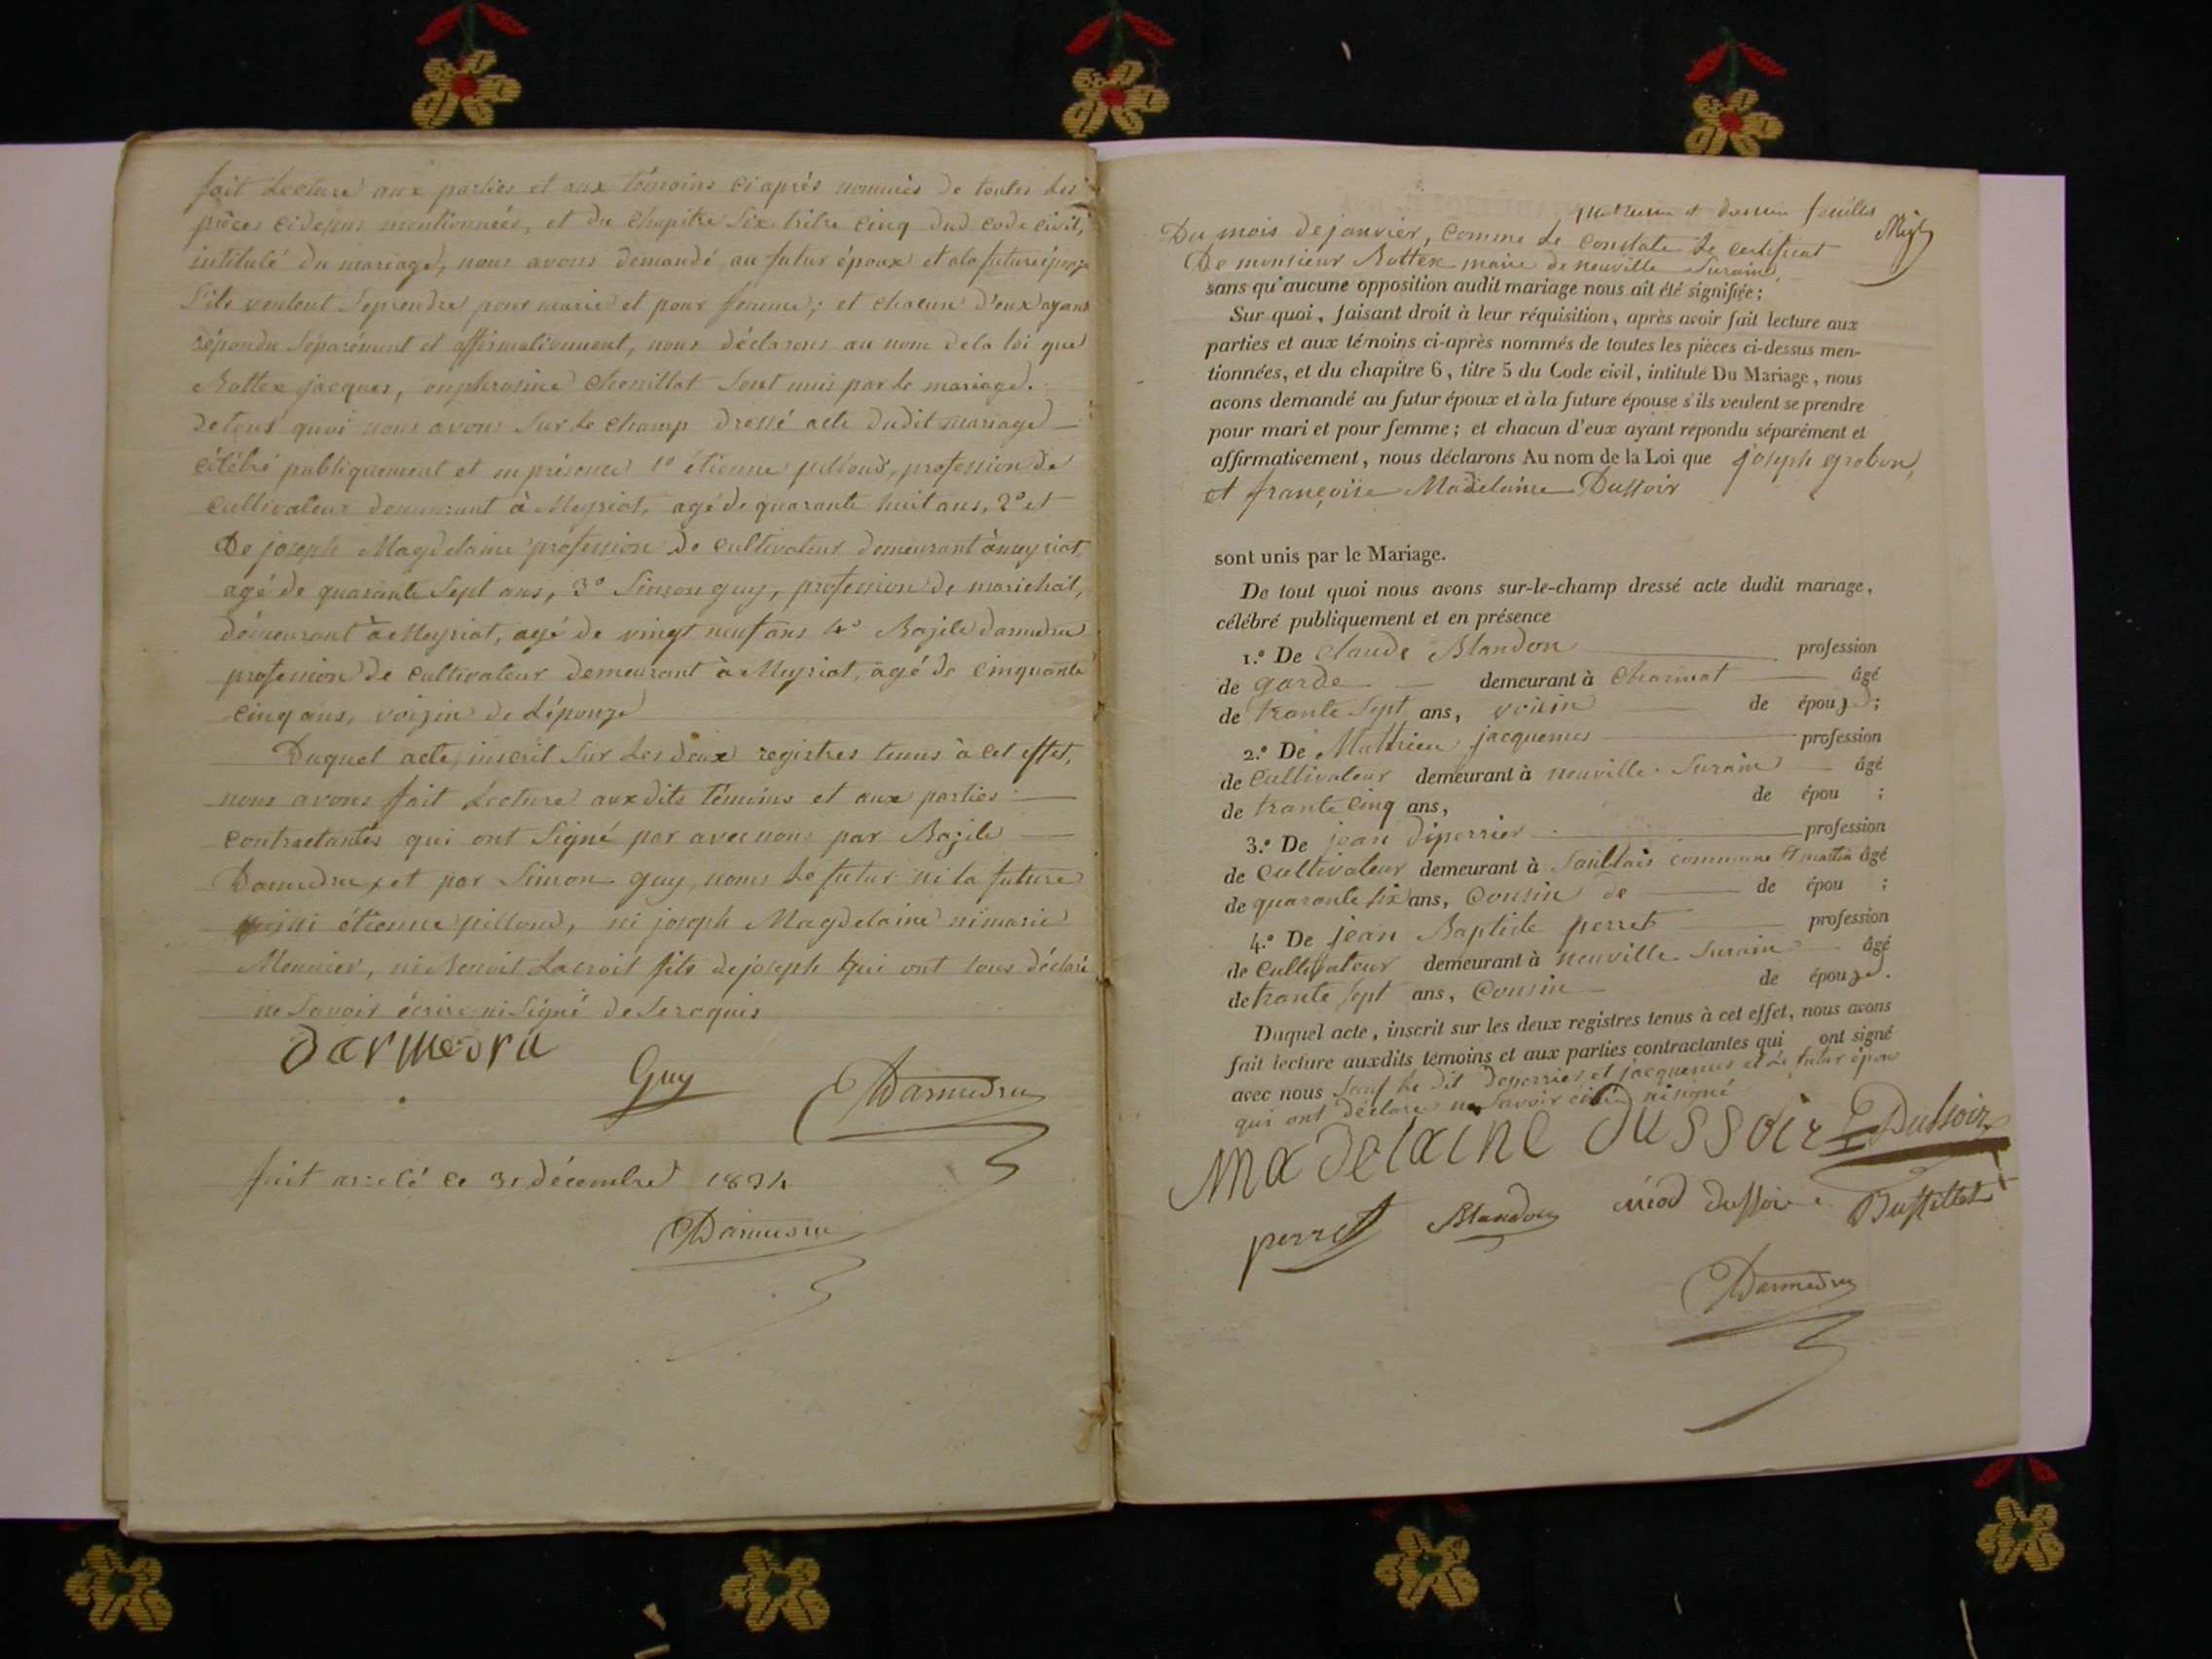 fait Lecture aux parties et aux témoins ci après nommés de toutes Les
pièces cidessus mentionnées, et du Chapitre Six titre cinq dud code civil,
intitulé du mariage, nous avons demandé au futur époux et ala future épouze
S'ils veulent Seprendre pour marie et pour femme; et chacun d'eux ayant
répondu Séparément et affirmativement, nous déclarons au nom dela loi que
Bottex jacques, Chenillat Sont unis par Le mariage.
detous quoi nous avons Sur Le champ dressé acte dudit mariage
célébré publiquement et en présence 1° étienne pilloud, profession de
cultivateur demeurant à Meyriat, agé de quarante huit ans, 2° et
De joseph Magdelaine profession de cultivateur demeurant à meyriat,
agé de quarante Sept ans, 3° Simon guy, profession de marichal,
démeurant à Meyriat, agé de vingt neuf ans 4° Bazile darmedru
profession de cultivateur demeurant à Meyriat, agé de cinquante
cinq ans, voizin de L'épouze
Duquel acte, inscrit Sur Les deux registres tenus à cet effet,
nous avons fait Lecture auxdits témoins et aux parties
contractantes qui ont Signé par avec nous par Bazile
Darmedru, et par Simon guy, nomes Le futur ni la future
ni étienne pilloud, ni joseph Magdelaine ni marie
Meunier, ni Benoit Lacroit fils de joseph qui ont tous déclaré
ne Savoir écrire ni Signé de Ce requis
darmedru
Guy
Darmedru
fait arrêté ce 31 décembre 1834
Darmedru
feuillet
Du mois de janvier, comme Le constate Le certificat
De monsieur Bottex maire de neuville Surain,
sans qu'aucune opposition audit mariage nous ait été signifiée;
Sur quoi, faisant droit à leur réquisition, après avoir fait lecture aux
parties et aux témoins ci-après nommés de toutes les pièces ci-dessus men-
tionnées, et du chapitre 6, titre 5 du Code civil, intitulé Du Mariage, nous
avons demandé au futur époux et à la future épouse s'ils veulent se prendre
pour mari et pour femme; et chacun d'eux ayant répondu séparément et
affirmativement, nous déclarons Au nom de la Loi que joseph grobon,
et françoise Madelaine Dussoir
sont unis par le Mariage.
De tout quoi nous avons sur-le-champ dressé acte dudit mariage,
célébré publiquement et en présence
1.° De Claude Blandon profession
de garde demeurant à Charinat âgé
de trante Sept ans, voisin de épouze;
2.° De Mathieu jacquemes profession
de Cultivateur demeurant à neuville Surain âgé
de trante cinq ans, de épou ;
3.° De jean diperrier profession
de Cultivateur demeurant à commune St martin âgé
de quarante six ans, Cousin de de épou ;
4.° De jean Baptiste perret profession
de Cultivateur demeurant à neuville Surain âgé
de trante Sept ans, Cousin de épouze.
Duquel acte, inscrit sur les deux registres tenus à cet effet, nous avons
fait lecture auxdits témoins et aux parties contractantes qui ont signé
avec nous Sauf Le dit Deperrier et jacquemes et Le futur époux
qui ont déclaré ne Savoir écrire ni signé
Madelaine dussoir Dussoir
perret Blandon dussoir
Darmedru